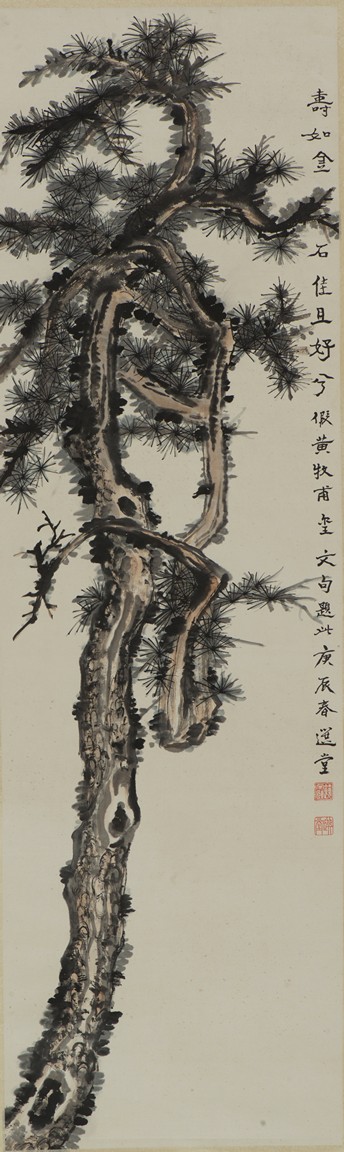 壽如金石佳且好兮假黃牧甫璽文句題此庚辰春選堂